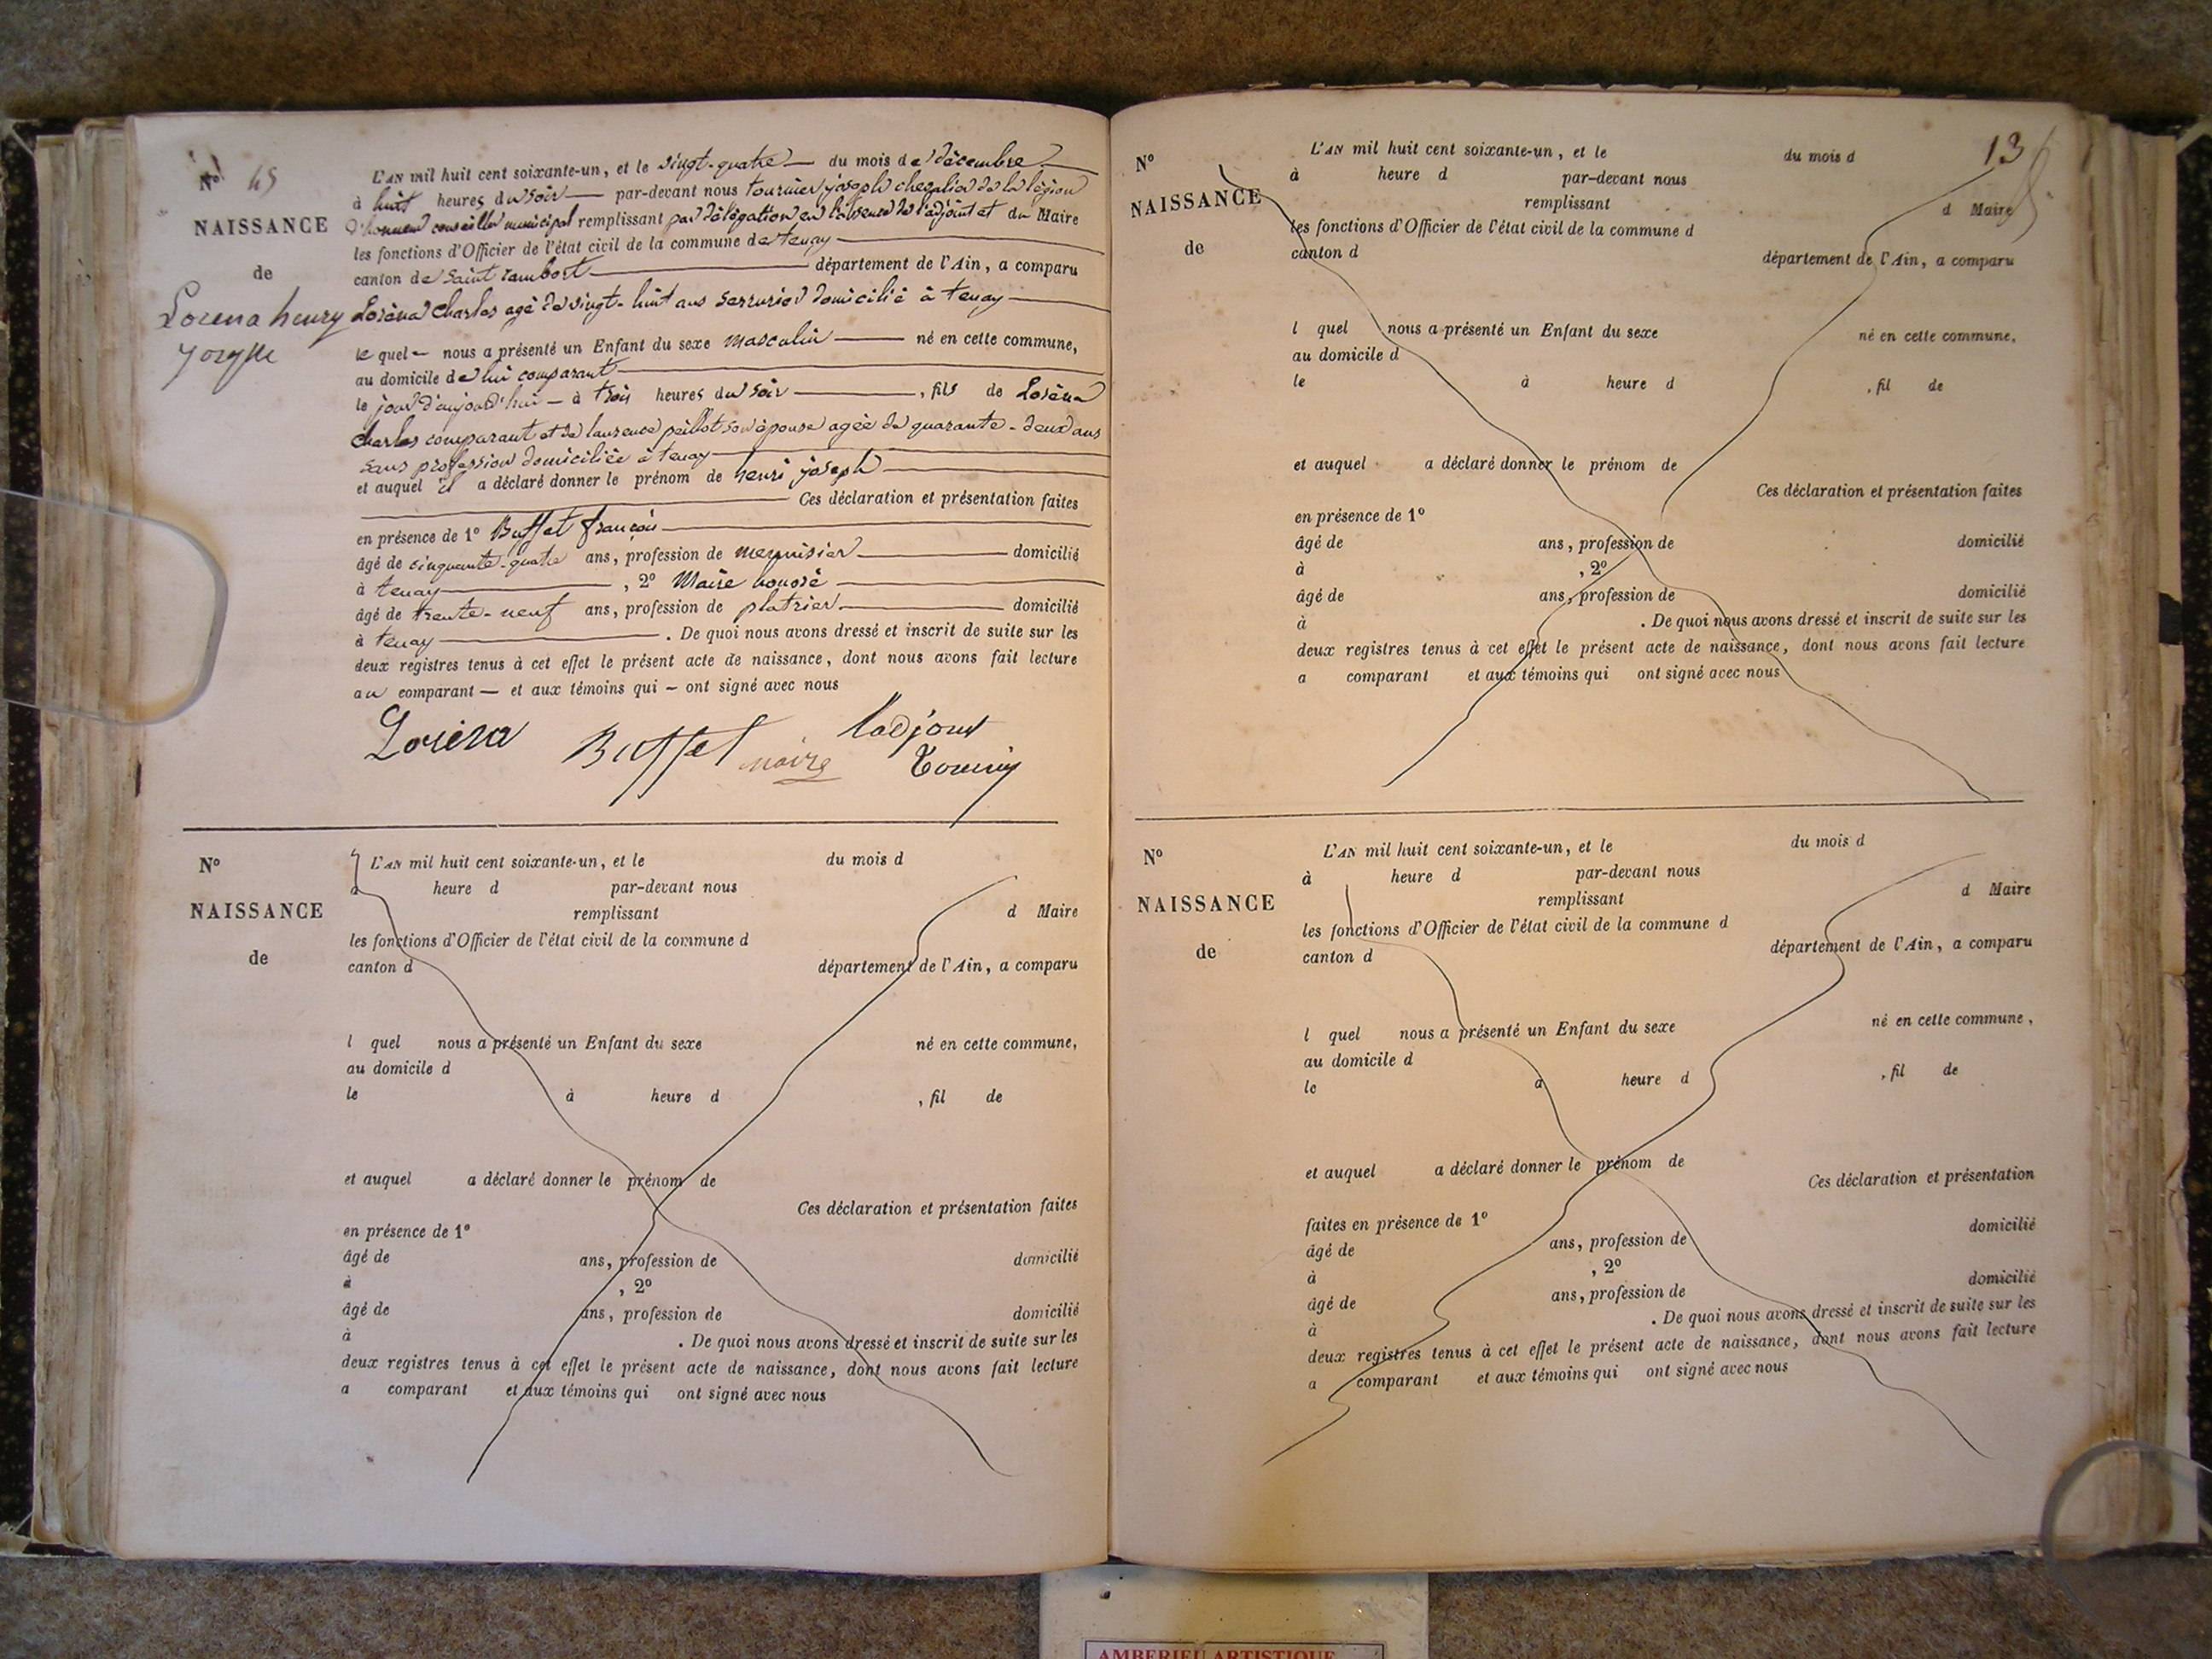 N° 45
NAISSANCE
de
Lorena henry
joseph
L'AN mil huit cent soixante-un, et le vingt-quatre du mois de décembre
à huit heures du soir par-devant nous tournier joseph chevalier de la légion
d'honneur conseiller municipal remplissant par délégation en l'absence de l'adjoint et du Maire
les fonctions d'Officier de l'état civil de la commune de tenay
canton de Saint rambert département de l'Ain, a comparu
Loréna Charles agé de vingt-huit ans serrurier domicilié à tenay
le quel nous a présenté un Enfant du sexe masculin né en cette commune,
au domicile de lui comparant
le jour d'aujourd'hui à trois heures du soir, fils de Loréna
Charles comparant et de laurence peillot son épouse agée de quarante-deux ans
sans profession domiciliée à tenay
et auquel il a déclaré donner le prénom de henri joseph
Ces déclaration et présentation faites
en présence de 1° Buffet françois
âgé de cinquante-quatre ans, profession de menuisier domicilié
à tenay, 2° Maire honoré
âgé de trente-neuf ans, profession de platrier domicilié
à tenay. De quoi nous avons dressé et inscrit de suite sur les
deux registres tenus à cet effet le présent acte de naissance, dont nous avons fait lecture
au comparant et aux témoins qui ont signé avec nous
Loréna Buffet maire
N°
NAISSANCE
de
L'AN mil huit cent soixante-un, et le du mois d
à heure d par-devant nous
remplissant d Maire
les fonctions d'Officier de l'état civil de la commune d
canton d département de l'Ain, a comparu
l quel nous a présenté un Enfant du sexe né en cette commune,
au domicile d
le à heure d , fil de
et auquel a déclaré donner le prénom de
Ces déclaration et présentation faites
en présence de 1°
âgé de ans, profession de domicilié
à , 2°
âgé de ans, profession de domicilié
à . De quoi nous avons dressé et inscrit de suite sur les
deux registres tenus à cet effet le présent acte de naissance, dont nous avons fait lecture
a comparant et aux témoins qui ont signé avec nous
N°
NAISSANCE
de
L'AN mil huit cent soixante-un, et le du mois d
à heure d par-devant nous
remplissant d Maire
les fonctions d'Officier de l'état civil de la commune d
canton d département de l'Ain, a comparu
l quel nous a présenté un Enfant du sexe né en cette commune,
au domicile d
le à heure d , fil de
et auquel a déclaré donner le prénom de
Ces déclaration et présentation faites
en présence de 1°
âgé de ans, profession de domicilié
à , 2°
âgé de ans, profession de domicilié
à . De quoi nous avons dressé et inscrit de suite sur les
deux registres tenus à cet effet le présent acte de naissance, dont nous avons fait lecture
a comparant et aux témoins qui ont signé avec nous
N°
NAISSANCE
de
L'AN mil huit cent soixante-un, et le du mois d
à heure d par-devant nous
remplissant d Maire
les fonctions d'Officier de l'état civil de la commune d
canton d département de l'Ain, a comparu
l quel nous a présenté un Enfant du sexe né en cette commune,
au domicile d
le à heure d , fil de
et auquel a déclaré donner le prénom de
Ces déclaration et présentation
faites en présence de 1° domicilié
âgé de ans, profession de
à , 2° domicilié
âgé de ans, profession de
à . De quoi nous avons dressé et inscrit de suite sur les
deux registres tenus à cet effet le présent acte de naissance, dont nous avons fait lecture
a comparant et aux témoins qui ont signé avec nous
AMBERIEU ARTISTIQUE